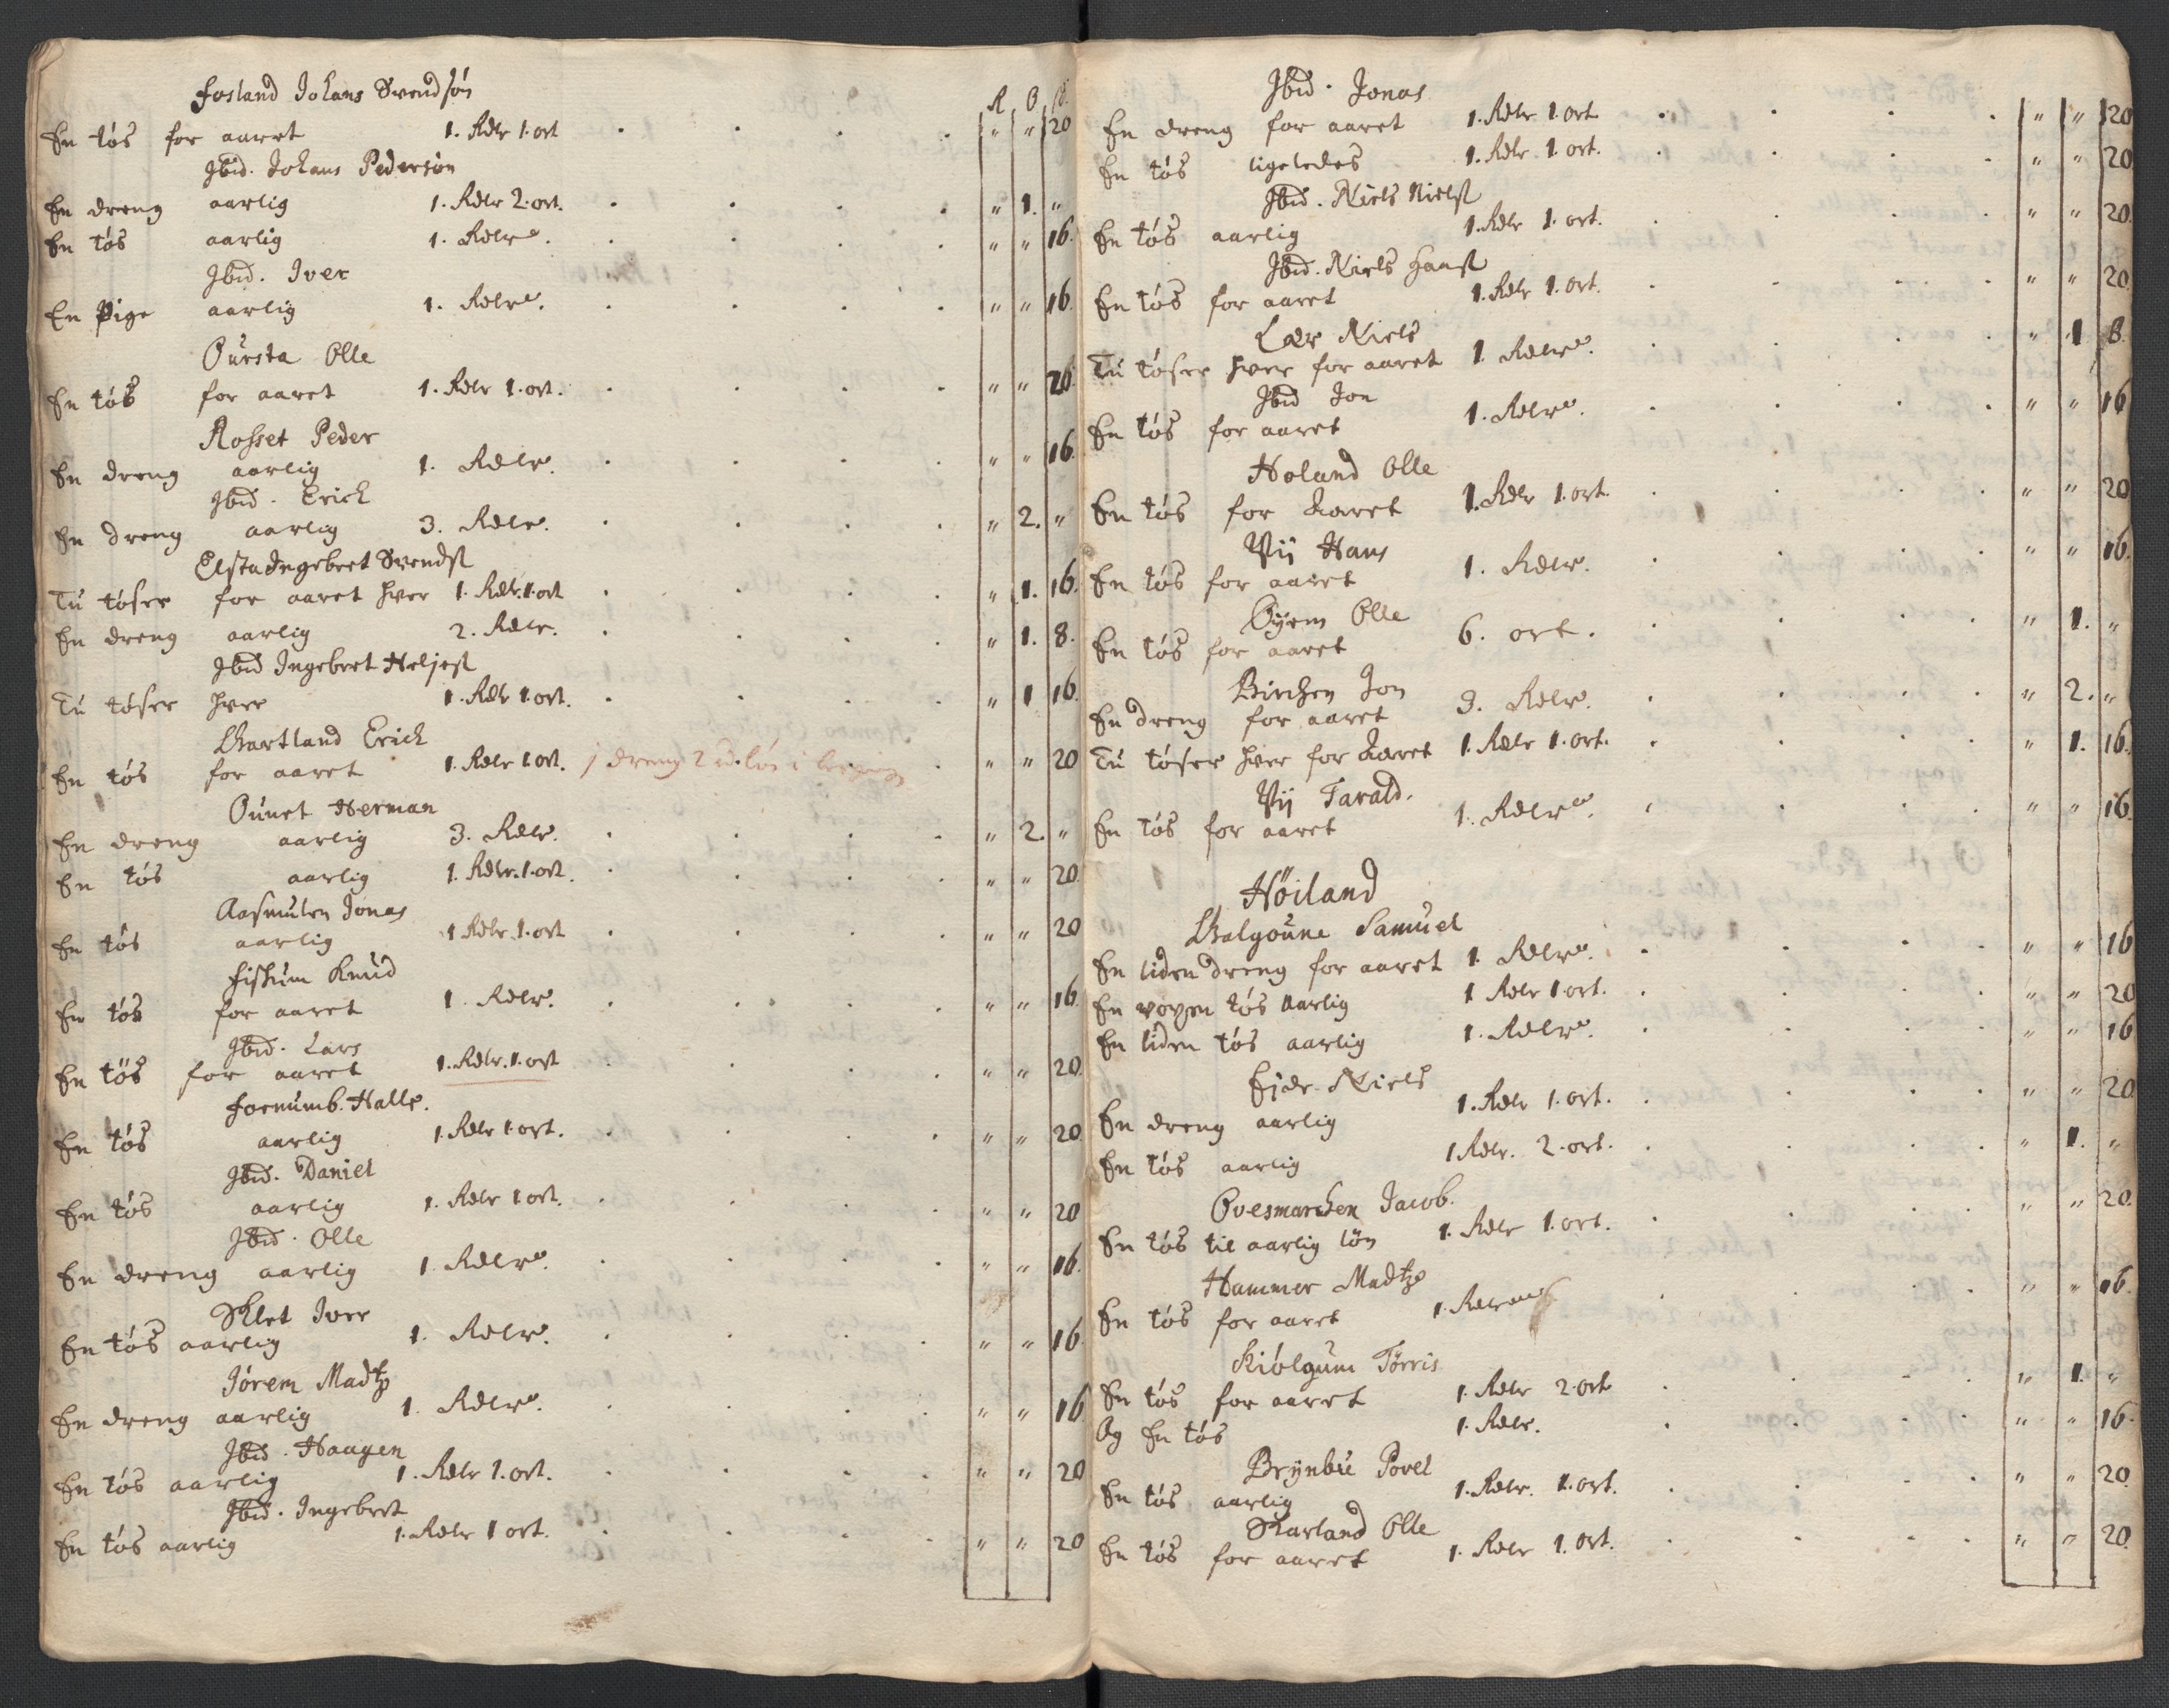 Fosland Johans Svendsøn
R O ß
En tøs for aaret 1. Rdlr 1. ort " " 20
Jbid. Johans Pedersøn
En dreng aarlig 1. Rdlr 2. ort. " 1. "
En tøs aarlig 1. Rdlr. " " 16.
Jbid. Iver
En Pige aarlig 1. Rdlr. " " 16.
Oursta Olle
En tøs for aaret 1. Rdlr 1. ort. " " 20.
Rosset Peder
En dreng aarlig 1. Rdlr. " " 16.
Jbid. Erich
En dreng aarlig 3. Rdlr. " 2. "
Elsta Ingebret Svends
Tu tøser for aaret hver 1. Rdlr. 1. ort " 1. 16.
En dreng aarlig 2. Rdlr. " 1. 8.
Jbid Ingebret Heljes
Tu tøser hver 1. Rdlr 1. ort. " 1 16.
Hartland Erich
En tøs for aaret 1. Rdlr 1. ort. j dreng 2 rd. løn i " " 20
Ounet Herman
En dreng aarlig 3. Rdlr. " 2. "
En tøs aarlig 1. Rdlr. 1. ort. " " 20.
Aasmulen Jonas
En tøs aarlig 1 Rdlr. 1. ort " " 20
Fiskum Knud
En tøs for aaret 1. Rdlr. " " 16.
Jbid. Lars
En tøs for aaret 1. Rdlr. 1. ort " " 20.
Fornumb. Halle.
En tøs aarlig 1. Rdlr 1. ort. " " 20.
Jbid. Daniel
En tøs aarlig 1. Rdlr 1 ort. " " 20
Jbid. Olle
En dreng aarlig 1. Rdlr. " " 16.
Sklet Iver
En tøs aarlig 1. Rdlr. " " 16.
Jørem Madtz
En dreng aarlig 1. Rdlr. " " 16
Jbid. Haagen
En tøs aarlig 1. Rdlr 1. ort. " " 20
Jbid. Ingebret
En tøs aarlig 1. Rdlr 1 ort. " " 20
Jbid. Jonas
En dreng for aaret 1. Rdlr 1 ort. " " 20
En tøs ligeledes 1. Rdlr. 1. ort. " " 20
Jbid. Niels Niels
En tøs aarlig 1. Rdlr 1. ort. " " 20.
Jbid. Niels Hans
En tøs for aaret 1. Rdlr 1. ort. " " 20.
Lær Niels
Tu tøser hver for aaret 1. Rdlr. " 1 8.
Jbid Jon
En tøs for aaret 1. Rdlr. " " 16
Holand Olle
En tøs for Aaret 1. Rdlr 1. ort. " " 20
Vij Hans
En tøs for aaret 1. Rdlr. " " 16.
Øyem Olle
En tøs for aaret 6. ort. " 1. "
Birchen Jon
En dreng for aaret 3. Rdlr. " 2. "
Tu tøser hver for Aaret 1. Rdlr 1. ort. " 1. 16.
Vij Tarald.
En tøs for aaret 1. Rdlr. " " 16.
Höiland
Halgoune Samuel
En liden dreng for aaret 1. Rdlr. " " 16
En voxen tøs aarlig 1 Rdlr 1 ort. " " 20
En liden tøs aarlig 1. Rdlr. " " 16
Ejde Niels
En dreng aarlig 1. Rdlr 1. ort. " " 20
En tøs aarlig 1 Rdlr. 2. ort. " 1. "
Ovesmarchen Jacob.
En tøs til aarlig løn 1. Rdlr 1. ort. " " 20.
Hammer Madtz
En tøs for aaret 1. Rdlr " " 16.
Kiølgum Törris
En tøs for aaret 1. Rdlr 2. ort " 1. "
Og En tøs 1. Rdlr. " " 16.
Brÿnbu Povel
En tøs aarlig 1. Rdlr. 1. ort. " " 20
Skarland Olle
En tøs for aaret 1. Rdlr 1. ort. " " 20.